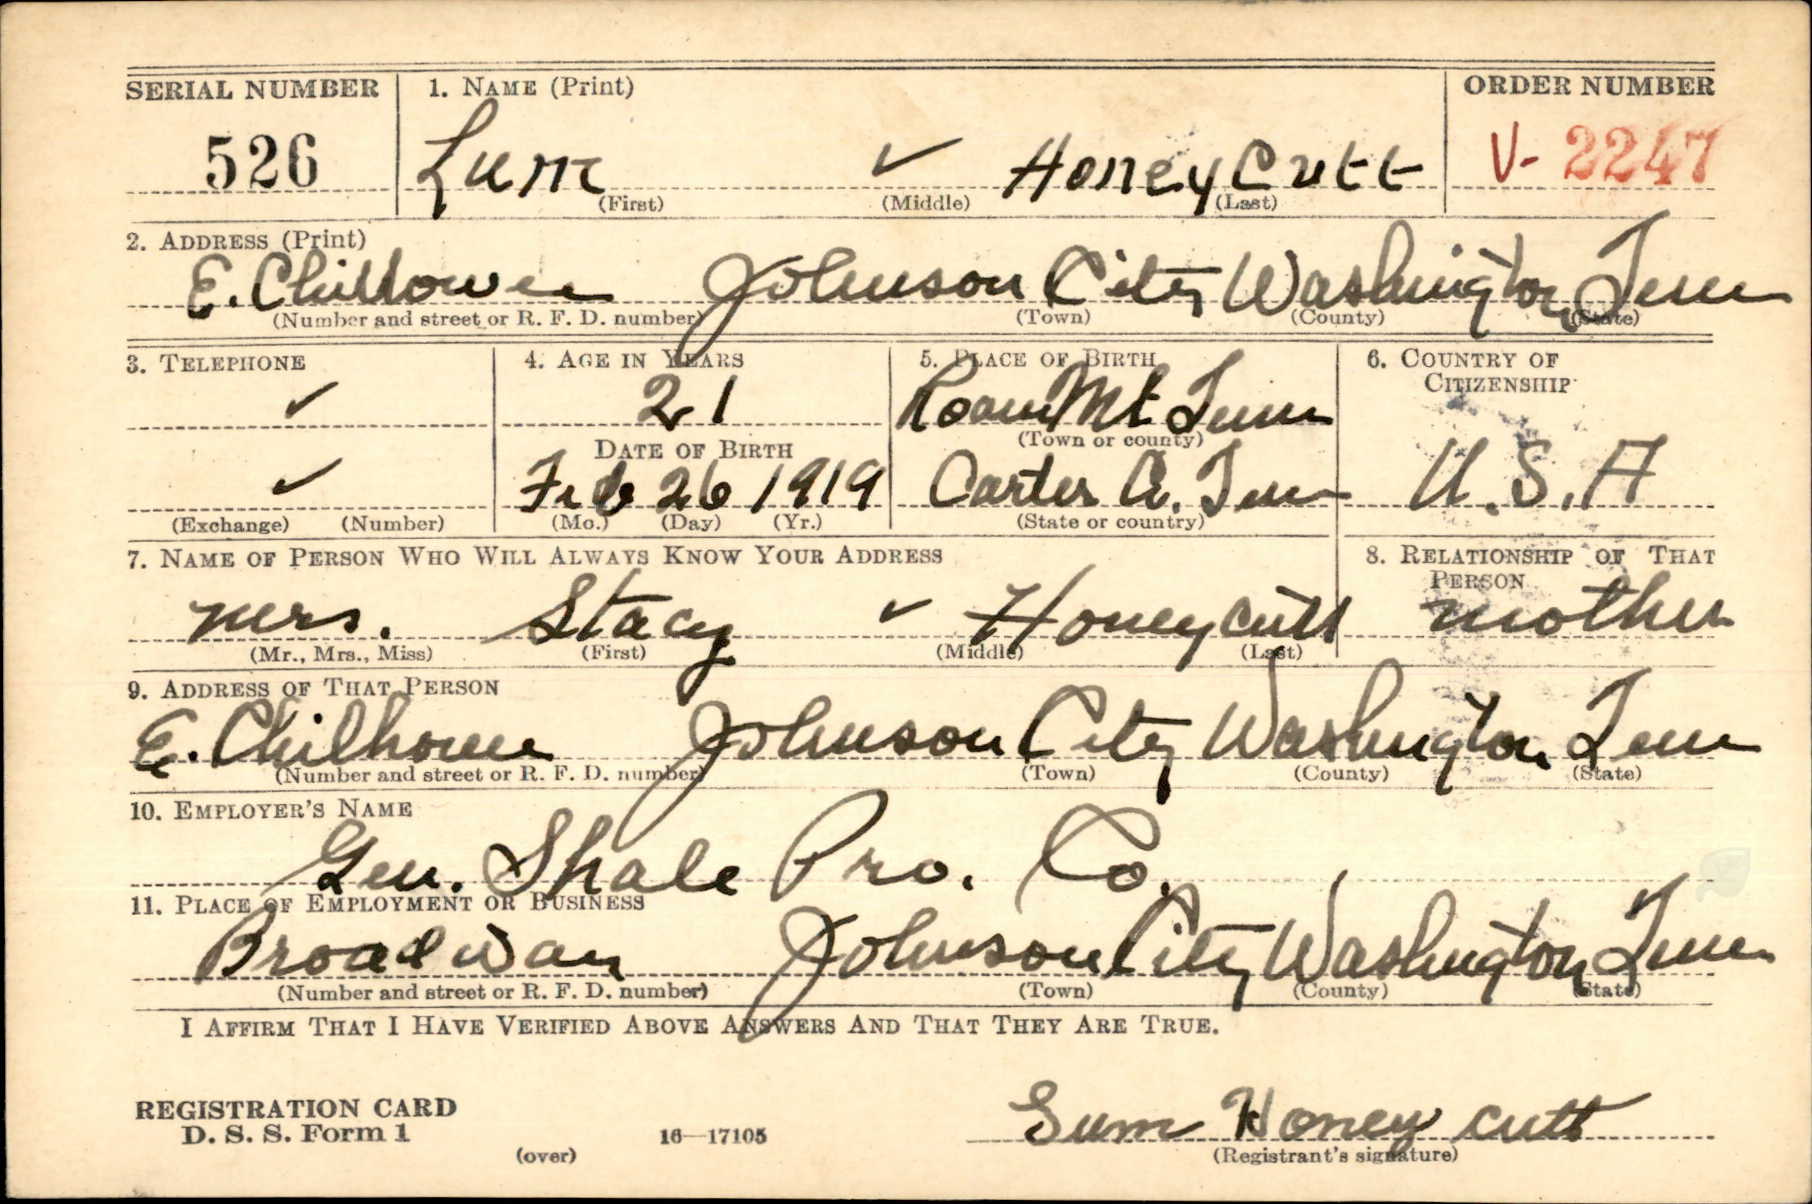 SERIAL NUMBER 1. NAME (Print) ORDER NUMBER
526 Lum ✓ HoneyCutt V- 2247
(First) (Middle) (Last)
2. ADDRESS (Print)
E. Chillowee Johnson City Washington Tenn
(Number and street or R. F. D. number) (Town) (County) (State)
3. TELEPHONE 4. AGE IN YEARS 5. PLACE OF BIRTH 6. COUNTRY OF CITIZENSHIP
✓ 21 Roan Mt Tenn
DATE OF BIRTH (Town or county)
✓ Feb 26 1919 Carter Co. Tenn U.S.A
(Exchange) (Number) (Mo.) (Day) (Yr.) (State or country)
7. NAME OF PERSON WHO WILL ALWAYS KNOW YOUR ADDRESS 8. RELATIONSHIP OF THAT PERSON
Mrs. Stacy ✓ Honeycutt mother
(Mr., Mrs., Miss) (First) (Middle) (Last)
9. ADDRESS OF THAT PERSON
E. Chilhowee Johnson City Washington Tenn
(Number and street or R. F. D. number) (Town) (County) (State)
10. EMPLOYER'S NAME
Gen. Shale Pro. Co.
11. PLACE OF EMPLOYMENT OR BUSINESS
Broadway Johnson City Washington Tenn
(Number and street or R. F. D. number) (Town) (County) (State)
I AFFIRM THAT I HAVE VERIFIED ABOVE ANSWERS AND THAT THEY ARE TRUE.
REGISTRATION CARD
D. S. S. Form 1 16—17105 Lum Honey cutt
(over) (Registrant's signature)